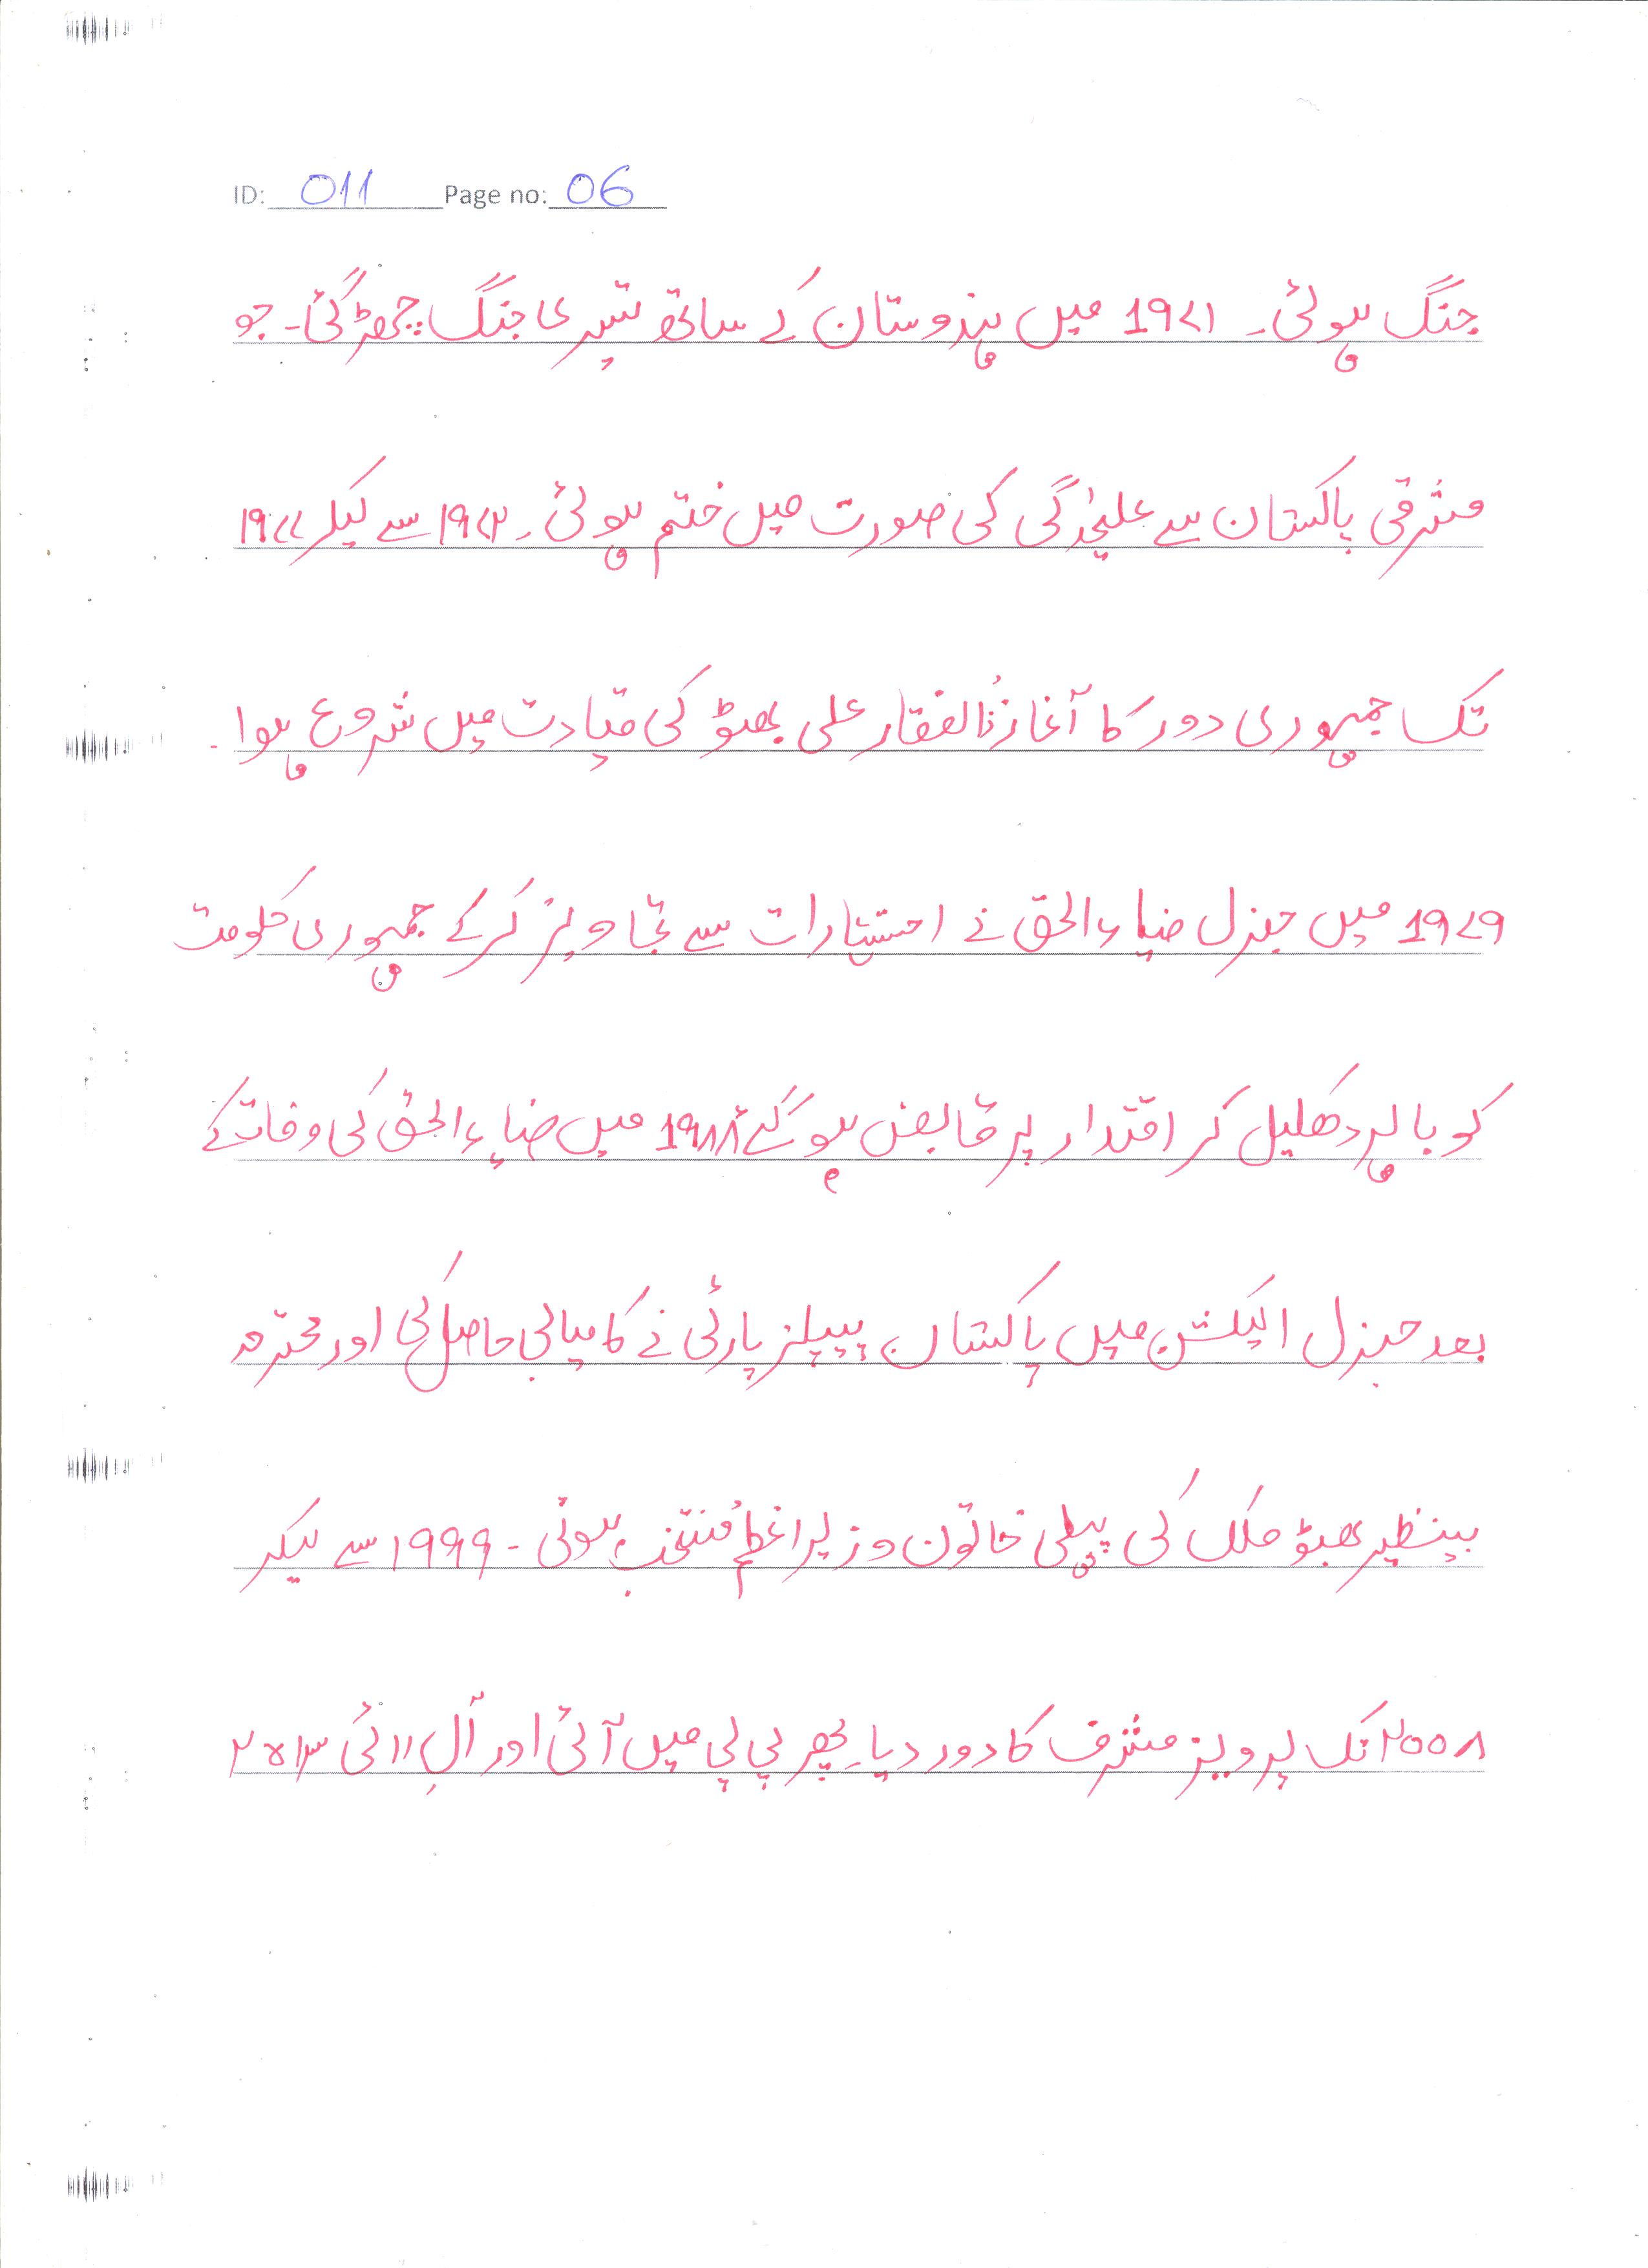 ID: 011 Page no: 06
جنگ ہوئی۔ 19۷۱ میں ہندوستان کے ساتھ تیسری جنگ چھڑ گئی۔ جو
مشرقی پاکستان سے علیحٰدگی کی صورت میں ختم ہوئی۔ ۱۹۷۲ سے لیکر ۱۹۷۷
تک جمہوری دور کا آغاز ذُالفقار علی بھٹو کی قیادت میں شروع ہوا۔
19۷9 میں جنرل ضیاءالحق نے اختیارات سے تجاویز کرکے جمہوری حکومت
کو باہر دھکلیل کر اقتدار پر قابض ہو گئے 19۸۸ میں ضیاءالحق کی وفات کے
بعد جنرل الیکشن میں پاکستان پیپلز پارٹی نے کامیابی حاصل کی اور محترمہ
بینظیر بھٹو ملک کی پہلی خاتون وزیراعظم مُنتخب ہوئی - ۱۹۹۹ سے لیکر
۲۰۰۸ تک پرویز مشرف کا دور دیا۔ پھر پی پی میں آئی اور ۲۰۱۳